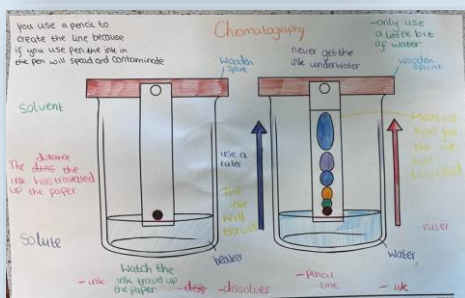 you use a pencil to
create the line because
if you use pen the ink in
the pen will spead and contaminate
Chromatography
-only use
a little bit
of water
never get the
ink underwater
wooden
splint
wooden
splint
Solvent
Measure
how far
the ink
has
travelled
distance
The dins the
ink has travelled
up the paper
use a
ruler
The
ink
will
travel
Solute
beaker
ruler
Water
Watch the
ink travel up
the paper
- ink
- diss
- dissolves
- pencil
line
- ink